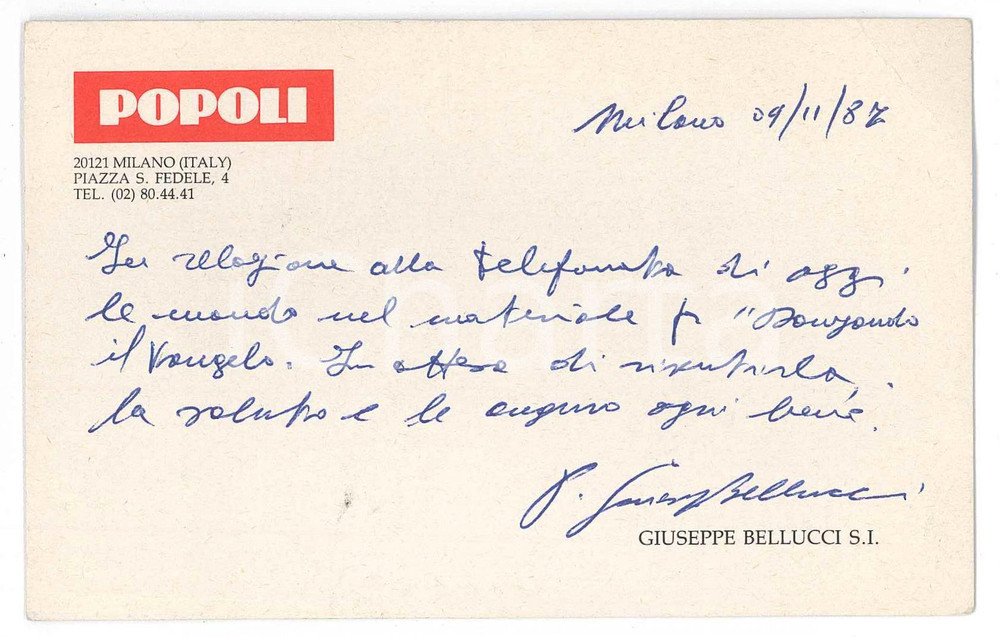 POPOLI
20121 MILANO (ITALY)
PIAZZA S. FEDELE, 4
TEL. (02) 80.44.41
Milano 09/11/87
In relazione alla telefonata di oggi
le mando nel materiale "Danzando
il Vangelo. In attesa di risentirla,
la saluto e le auguro ogni bene.
P. Giuseppe Bellucci
GIUSEPPE BELLUCCI S.I.